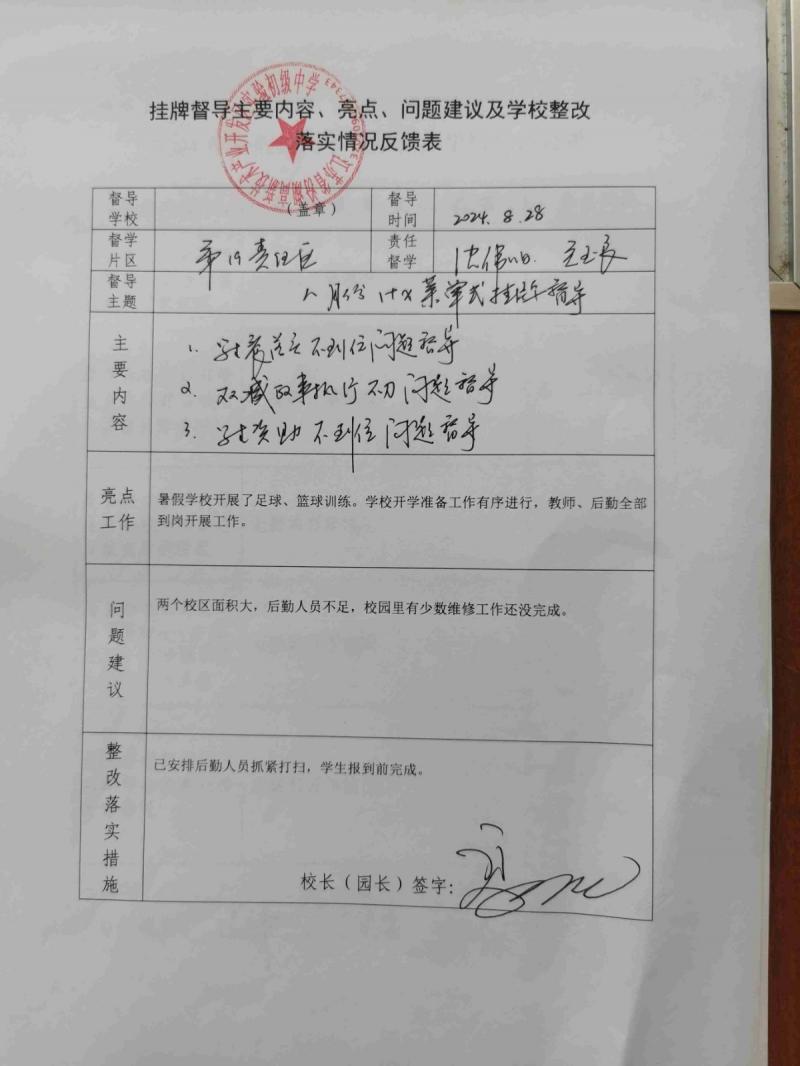 挂牌督导主要内容、亮点、问题建议及学校整改
落实情况反馈表
督导
学校
（盖章）
督导
时间
2024.8.28
督学
片区
责任区
责任
督学
督导
主题
八月份 1+X 菜单式挂牌督导
主
要
内
容
1. 不到位问题督导
2. 双减政策执行不力问题督导
3. 学生资助不到位问题督导
亮点
工作
暑假学校开展了足球、篮球训练。学校开学准备工作有序进行，教师、后勤全部
到岗开展工作。
问
题
建
议
两个校区面积大，后勤人员不足，校园里有少数维修工作还没完成。
整
改
落
实
措
施
已安排后勤人员抓紧打扫，学生报到前完成。
校长（园长）签字：